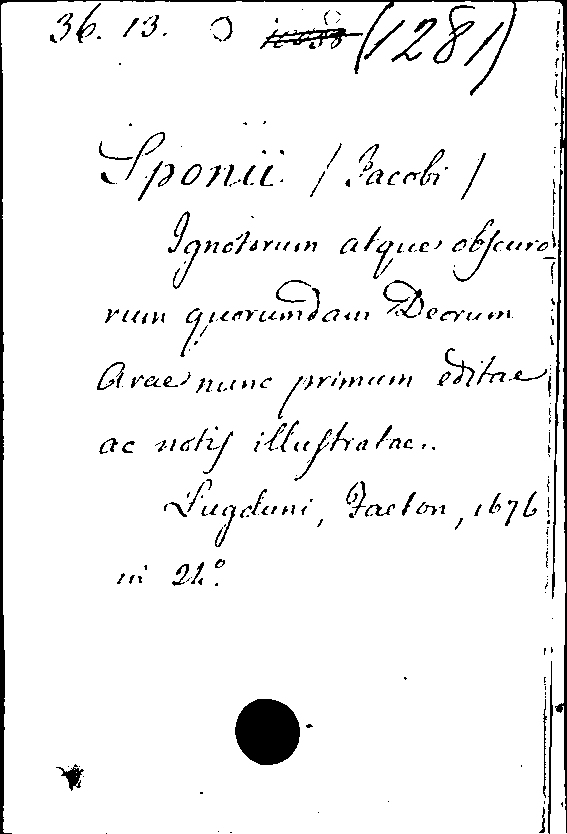 36. 13. (1281)
Sponii / Jacobi /
Ignotorum atque obscuro-
rum quorumdam Deorum
Arae nunc primum editae
ac notis illustratae..
Lugduni, Faeton, 1676
in 24°.